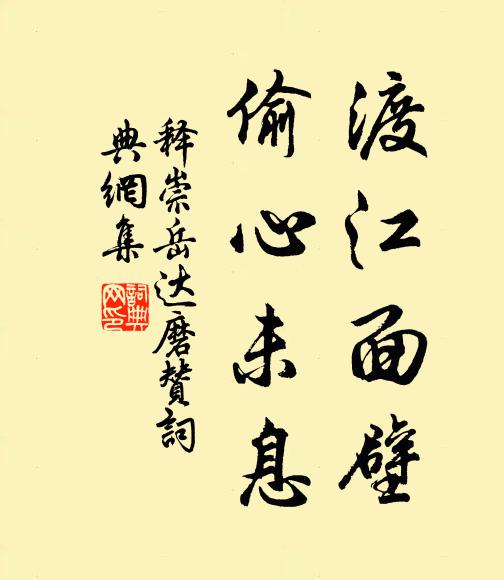 渡江面壁
偷心未息
释崇岳达磨赞詞
典網集
詞典网印